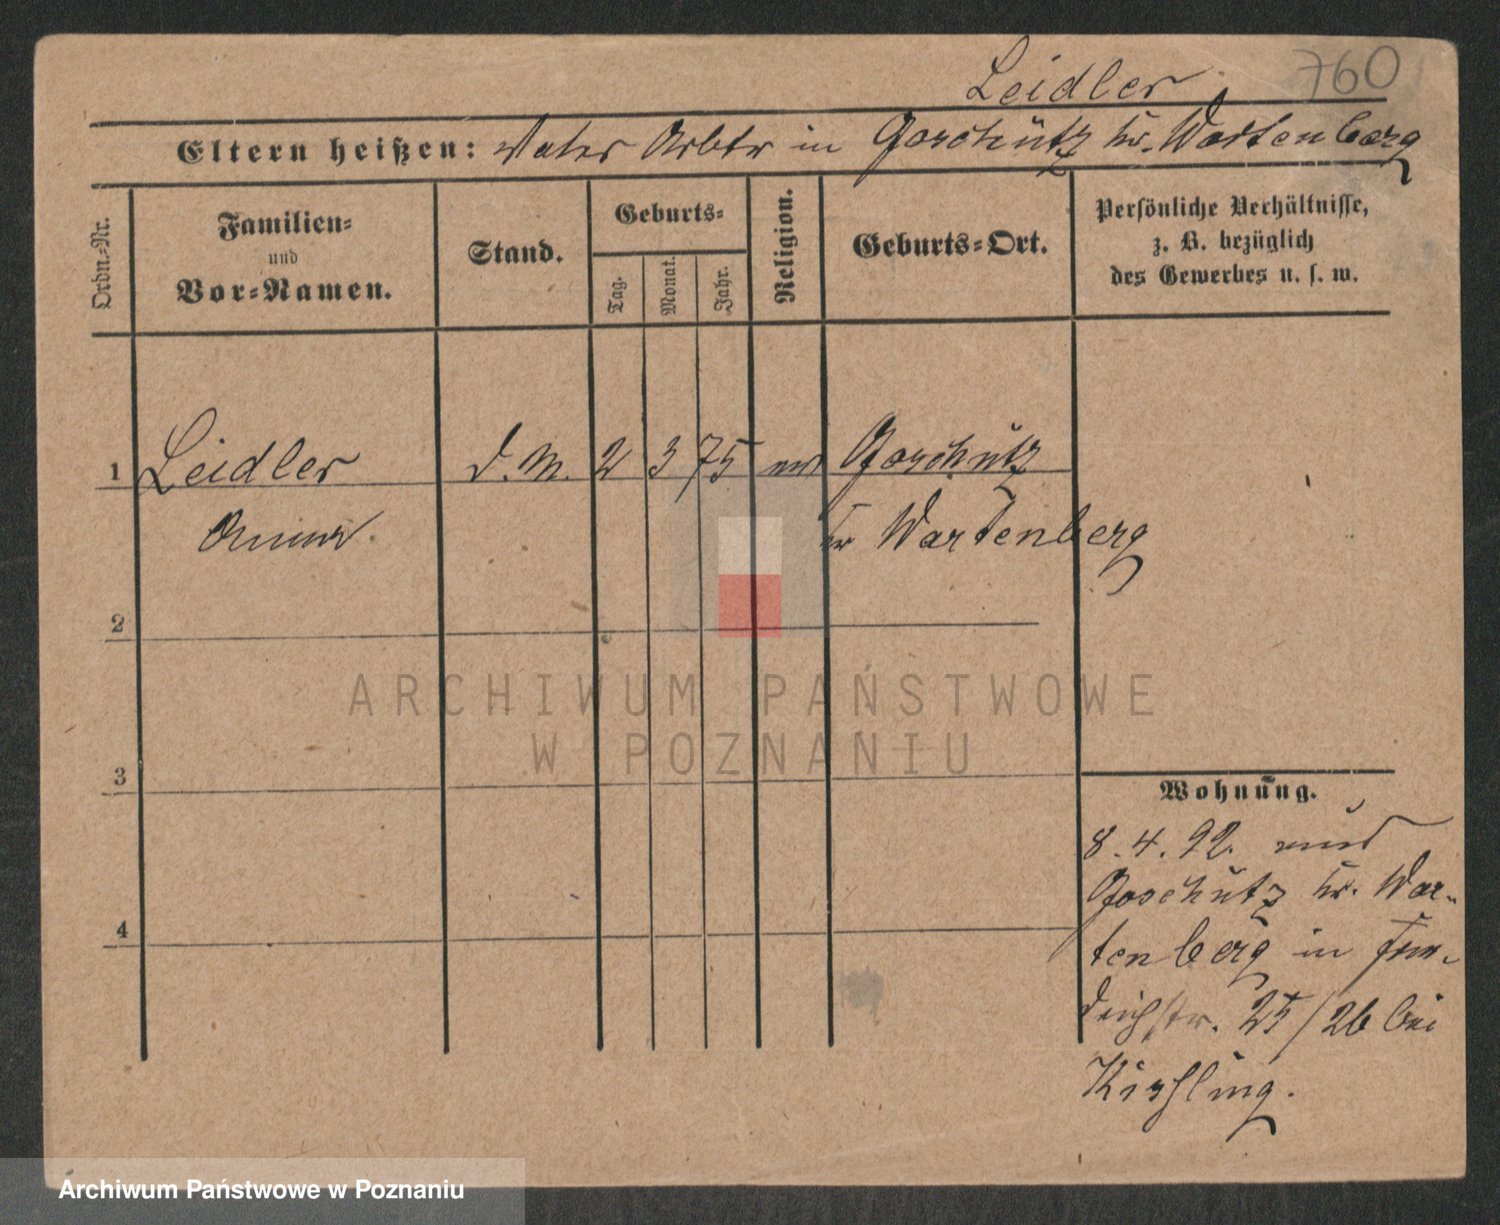 Leidler 760
Eltern heißen: Vater Arbtr in Goschütz kr. Wartenberg
Ordn.-Nr.
Familien-
und
Vor-Namen.
Stand.
Geburts-
Tag.
Monat.
Jahr.
Religion.
Geburts-Ort.
Persönliche Verhältnisse,
z. B. bezüglich
des Gewerbes u. s. w.
1 Leidler D. M. 2 3 75 ev Goschütz
Anna kr Wartenberg
2
3
4
ARCHIWUM PAŃSTWOWE
W POZNANIU
Wohnung.
8.4.92. aus
Goschütz kr. War-
tenberg in Frie-
drichstr. 25/26 bei
Kirschling.
Archiwum Państwowe w Poznaniu